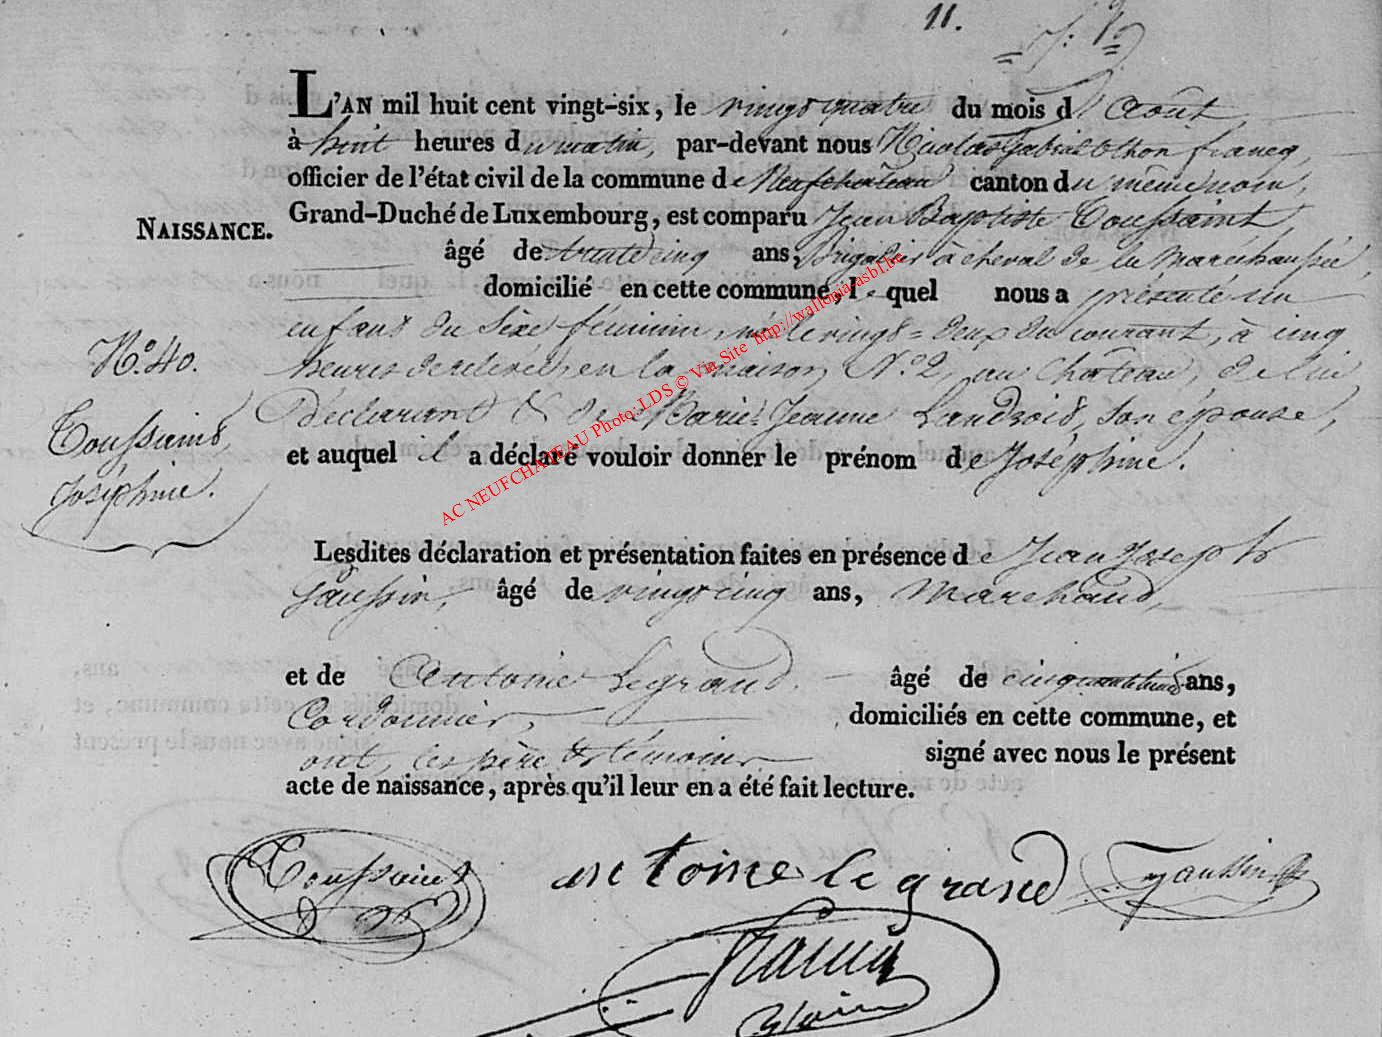 11.
L'AN mil huit cent vingt-six, le vingt quatre du mois d'Août
à huit heures du matin, par-devant nous Nicolas Gabriel Othon francq,
officier de l'état civil de la commune de Neufchateau canton du même nom,
Grand-Duché de Luxembourg, est comparu Jean Baptiste Toussaint,
NAISSANCE.
âgé de trente cinq ans, Brigadier à cheval de la Maréchaussée,
domicilié en cette commune, lequel nous a présenté un
enfant du sexe féminin, né le vingt-deux du courant, à cinq
No. 40.
heures de relevée, en la maison No. 2, au Château, de lui
Déclarant & de Marie-Jeanne Landroid, son épouse,
Toussaint,
Joséphine.
et auquel il a déclaré vouloir donner le prénom de Joséphine.
AC NEUFCHATEAU Photo: LDS © Via Site http://wallonia-asbl.be
Lesdites déclaration et présentation faites en présence de Jean Joseph
Gaussin, âgé de vingt cinq ans, Marchand,
et de Antoine Legrand. âgé de ans,
Cordonnier, domiciliés en cette commune, et
ont, les père & témoins signé avec nous le présent
acte de naissance, après qu'il leur en a été fait lecture.
Toussaint
antoine le grand
Gaussin
francq